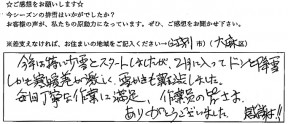 ☆ご感想をお願いします☆
今シーズンの排雪はいかがでしたか？
お客様の声が、私たちの原動力になっています。ぜひ、ご感想をお聞かせ下さい。
※差支えなければ、お住まいの地域をご記入ください→（江別市）（大麻区）
今年は珍い少雪とスタートしましたが、2月に入ってドンと降雪
しかも寒暖差が激しく、雪かきも難儀しました。
毎回丁寧な作業に満足、作業員の皆さま
ありがとうございました。感謝!!